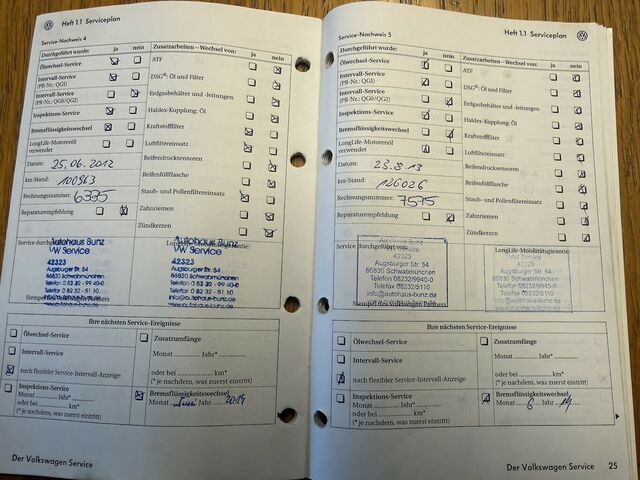 Heft 1.1 Serviceplan
Service-Nachweis 4
Durchgeführt wurde: ja nein
Ölwechsel-Service
Intervall-Service
(PR-Nr.: QGI)
Intervall-Service
(PR-Nr.: QG0/QG2)
Inspektions-Service
Bremsflüssigkeitswechsel
LongLife-Motorenöl
verwendet
Datum: 25.06.2012
km-Stand: 100963
Rechnungsnummer: 6335
Reparaturempfehlung
Zusatzarbeiten – Wechsel von: ja nein
ATF
DSG®: Öl und Filter
Erdgasbehälter und -leitungen
Haldex-Kupplung: Öl
Kraftstofffilter
Luftfiltereinsatz
Reifendrucksensoren
Reifenfüllflasche
Staub- und Pollenfiltereinsatz
Zahnriemen
Zündkerzen
Service durchgeführt
LongLife-Mobilitätsgarantie:
Autohaus Bunz
VW Service
42323
Augsburger Str. 54
86830 Schwabmünchen
Telefon 0 82 32 - 99 40 - 0
Telefax 0 82 32 - 51 10
info@autohaus-bunz.de
Autohaus Bunz
VW Service
42323
Augsburger Str. 54
86830 Schwabmünchen
Telefon 0 82 32 - 99 40 - 0
Telefax 0 82 32 - 51 10
info@autohaus-bunz.de
www.autohaus-bunz.de
Ihre nächsten Service-Ereignisse
Ölwechsel-Service
Intervall-Service
nach flexibler Service-Intervall-Anzeige
Inspektions-Service
Monat Jahr*
oder bei km*
(* je nachdem, was zuerst eintritt)
Zusatzumfänge
Monat Jahr*
oder bei km*
(* je nachdem, was zuerst eintritt)
Bremsflüssigkeitswechsel
Monat Juni Jahr 2014
Der Volkswagen Service
Heft 1.1 Serviceplan
Service-Nachweis 5
Durchgeführt wurde: ja nein
Ölwechsel-Service
Intervall-Service
(PR-Nr.: QGI)
Intervall-Service
(PR-Nr.: QG0/QG2)
Inspektions-Service
Bremsflüssigkeitswechsel
LongLife-Motorenöl
verwendet
Datum: 23.8.13
km-Stand: 126026
Rechnungsnummer: 7575
Reparaturempfehlung
Zusatzarbeiten – Wechsel von: ja nein
ATF
DSG®: Öl und Filter
Erdgasbehälter und -leitungen
Haldex-Kupplung: Öl
Kraftstofffilter
Luftfiltereinsatz
Reifendrucksensoren
Reifenfüllflasche
Staub- und Pollenfiltereinsatz
Zahnriemen
Zündkerzen
Service durchgeführt von:
LongLife-Mobilitätsgarantie:
VW Service
42323
Augsburger Str. 54
86830 Schwabmünchen
Telefon 08232/9940-0
Telefax 08232/5110
info@autohaus-bunz.de
Stempel des Volkswagen Partners
VW Service
42323
Augsburger Str. 54
86830 Schwabmünchen
Telefon 08232/9940-0
Telefax 08232/5110
info@autohaus-bunz.de
www.autohaus-bunz.de
Ihre nächsten Service-Ereignisse
Ölwechsel-Service
Intervall-Service
nach flexibler Service-Intervall-Anzeige
Inspektions-Service
Monat Jahr*
oder bei km*
(* je nachdem, was zuerst eintritt)
Zusatzumfänge
Monat Jahr*
oder bei km*
(* je nachdem, was zuerst eintritt)
Bremsflüssigkeitswechsel
Monat 6 Jahr 14
Der Volkswagen Service 25